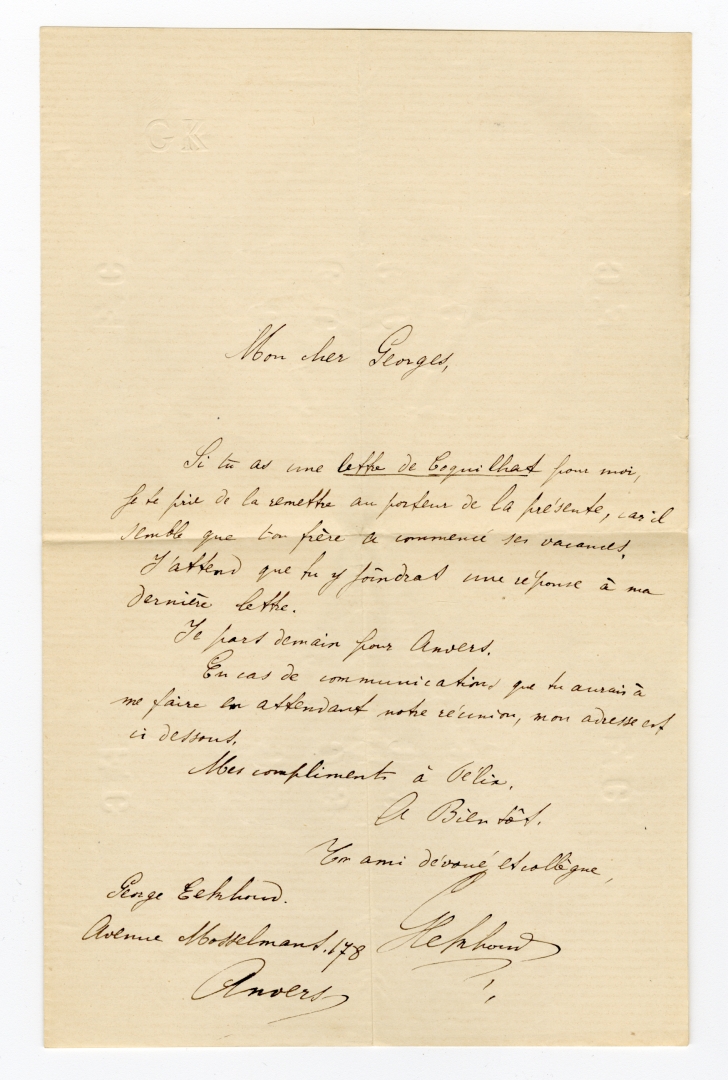 GK
Mon cher Georges,
Si tu as une lettre de Coquilhat pour moi,
je te prie de la remettre au porteur de la présente, car il
semble que ton frère a commencé ses vacances.
J'attend que tu y joindras une réponse à ma
dernière lettre.
Je pars demain pour Anvers.
En cas de communications que tu aurais à
me faire en attendant notre réunion, mon adresse est
ci dessous.
Mes compliments à Félix.
A Bientôt.
Ton ami dévoué et collègue,
GEekhoud
George Eekhoud.
Avenue Mosselmans. 178
Anvers